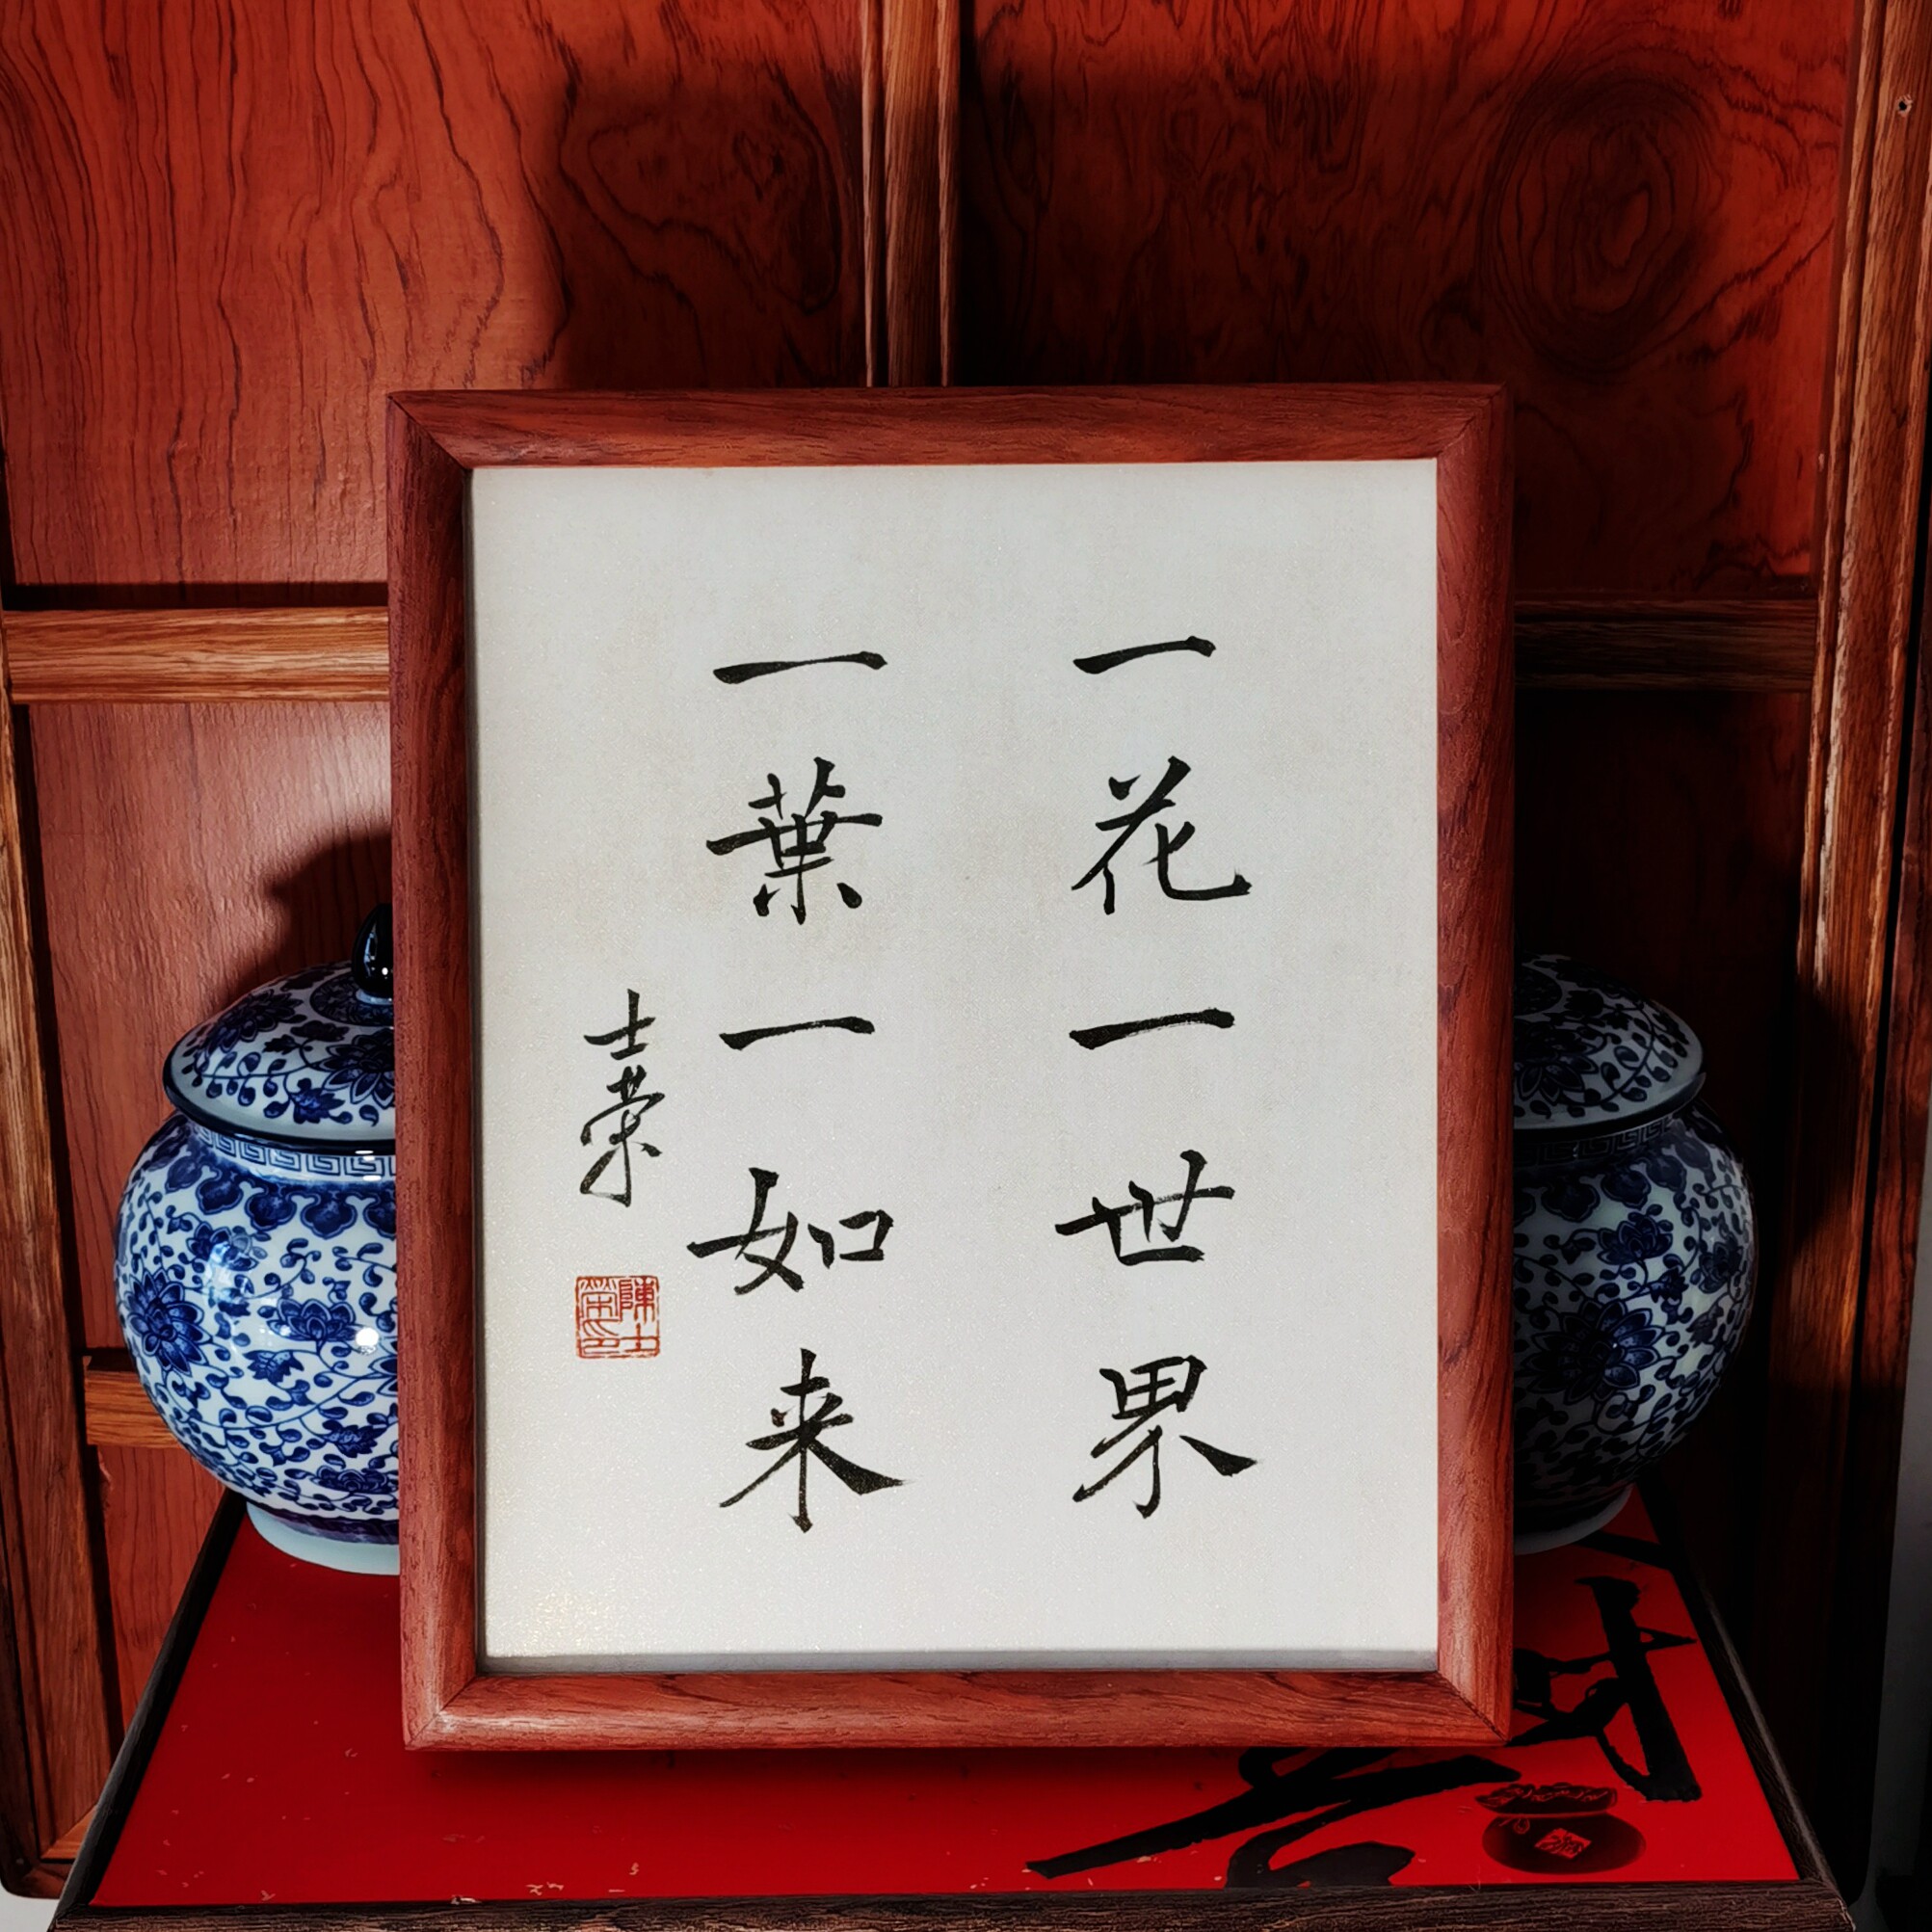 一花一世界
一葉一如来
士荣
陳士榮印